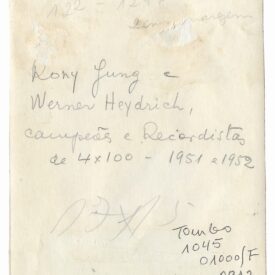 122 - 12
sem margem
Rony Jung e
Werner Heydrich,
campeões e Recordistas
de 4x100 - 1951 e 1952
Tombo
1045
01000/F